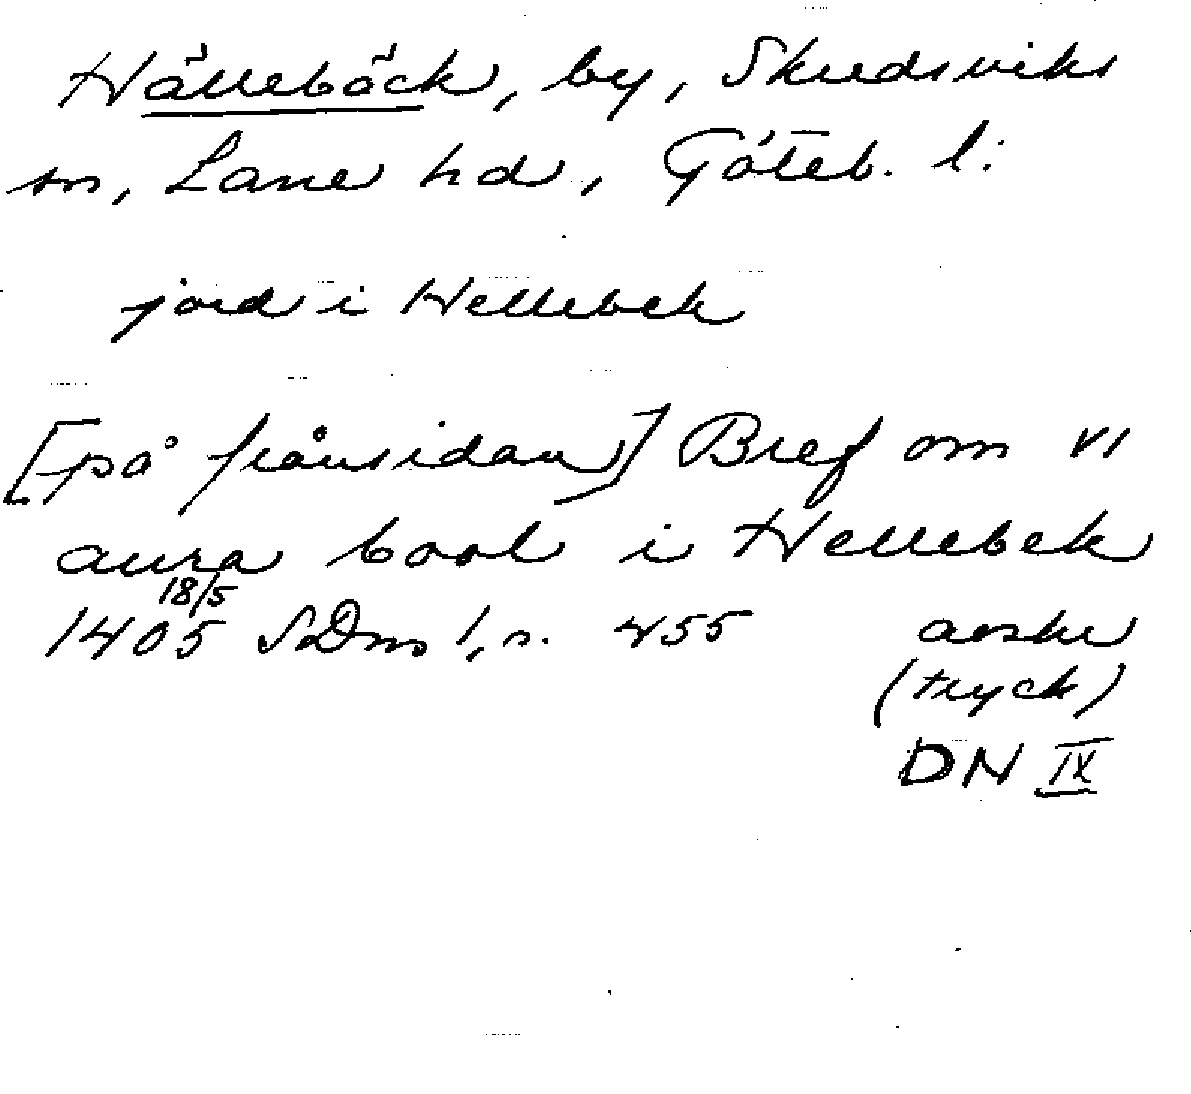 Hällebäck, by, Skredsviks
sn, Lane hd, Göteb. l:
jord i Hellebek
[på frånsidan] Bref om VI
aura bool i Hellebek
18/5
1405 SDns 1, s. 455 avskr
(tryck)
DN IX